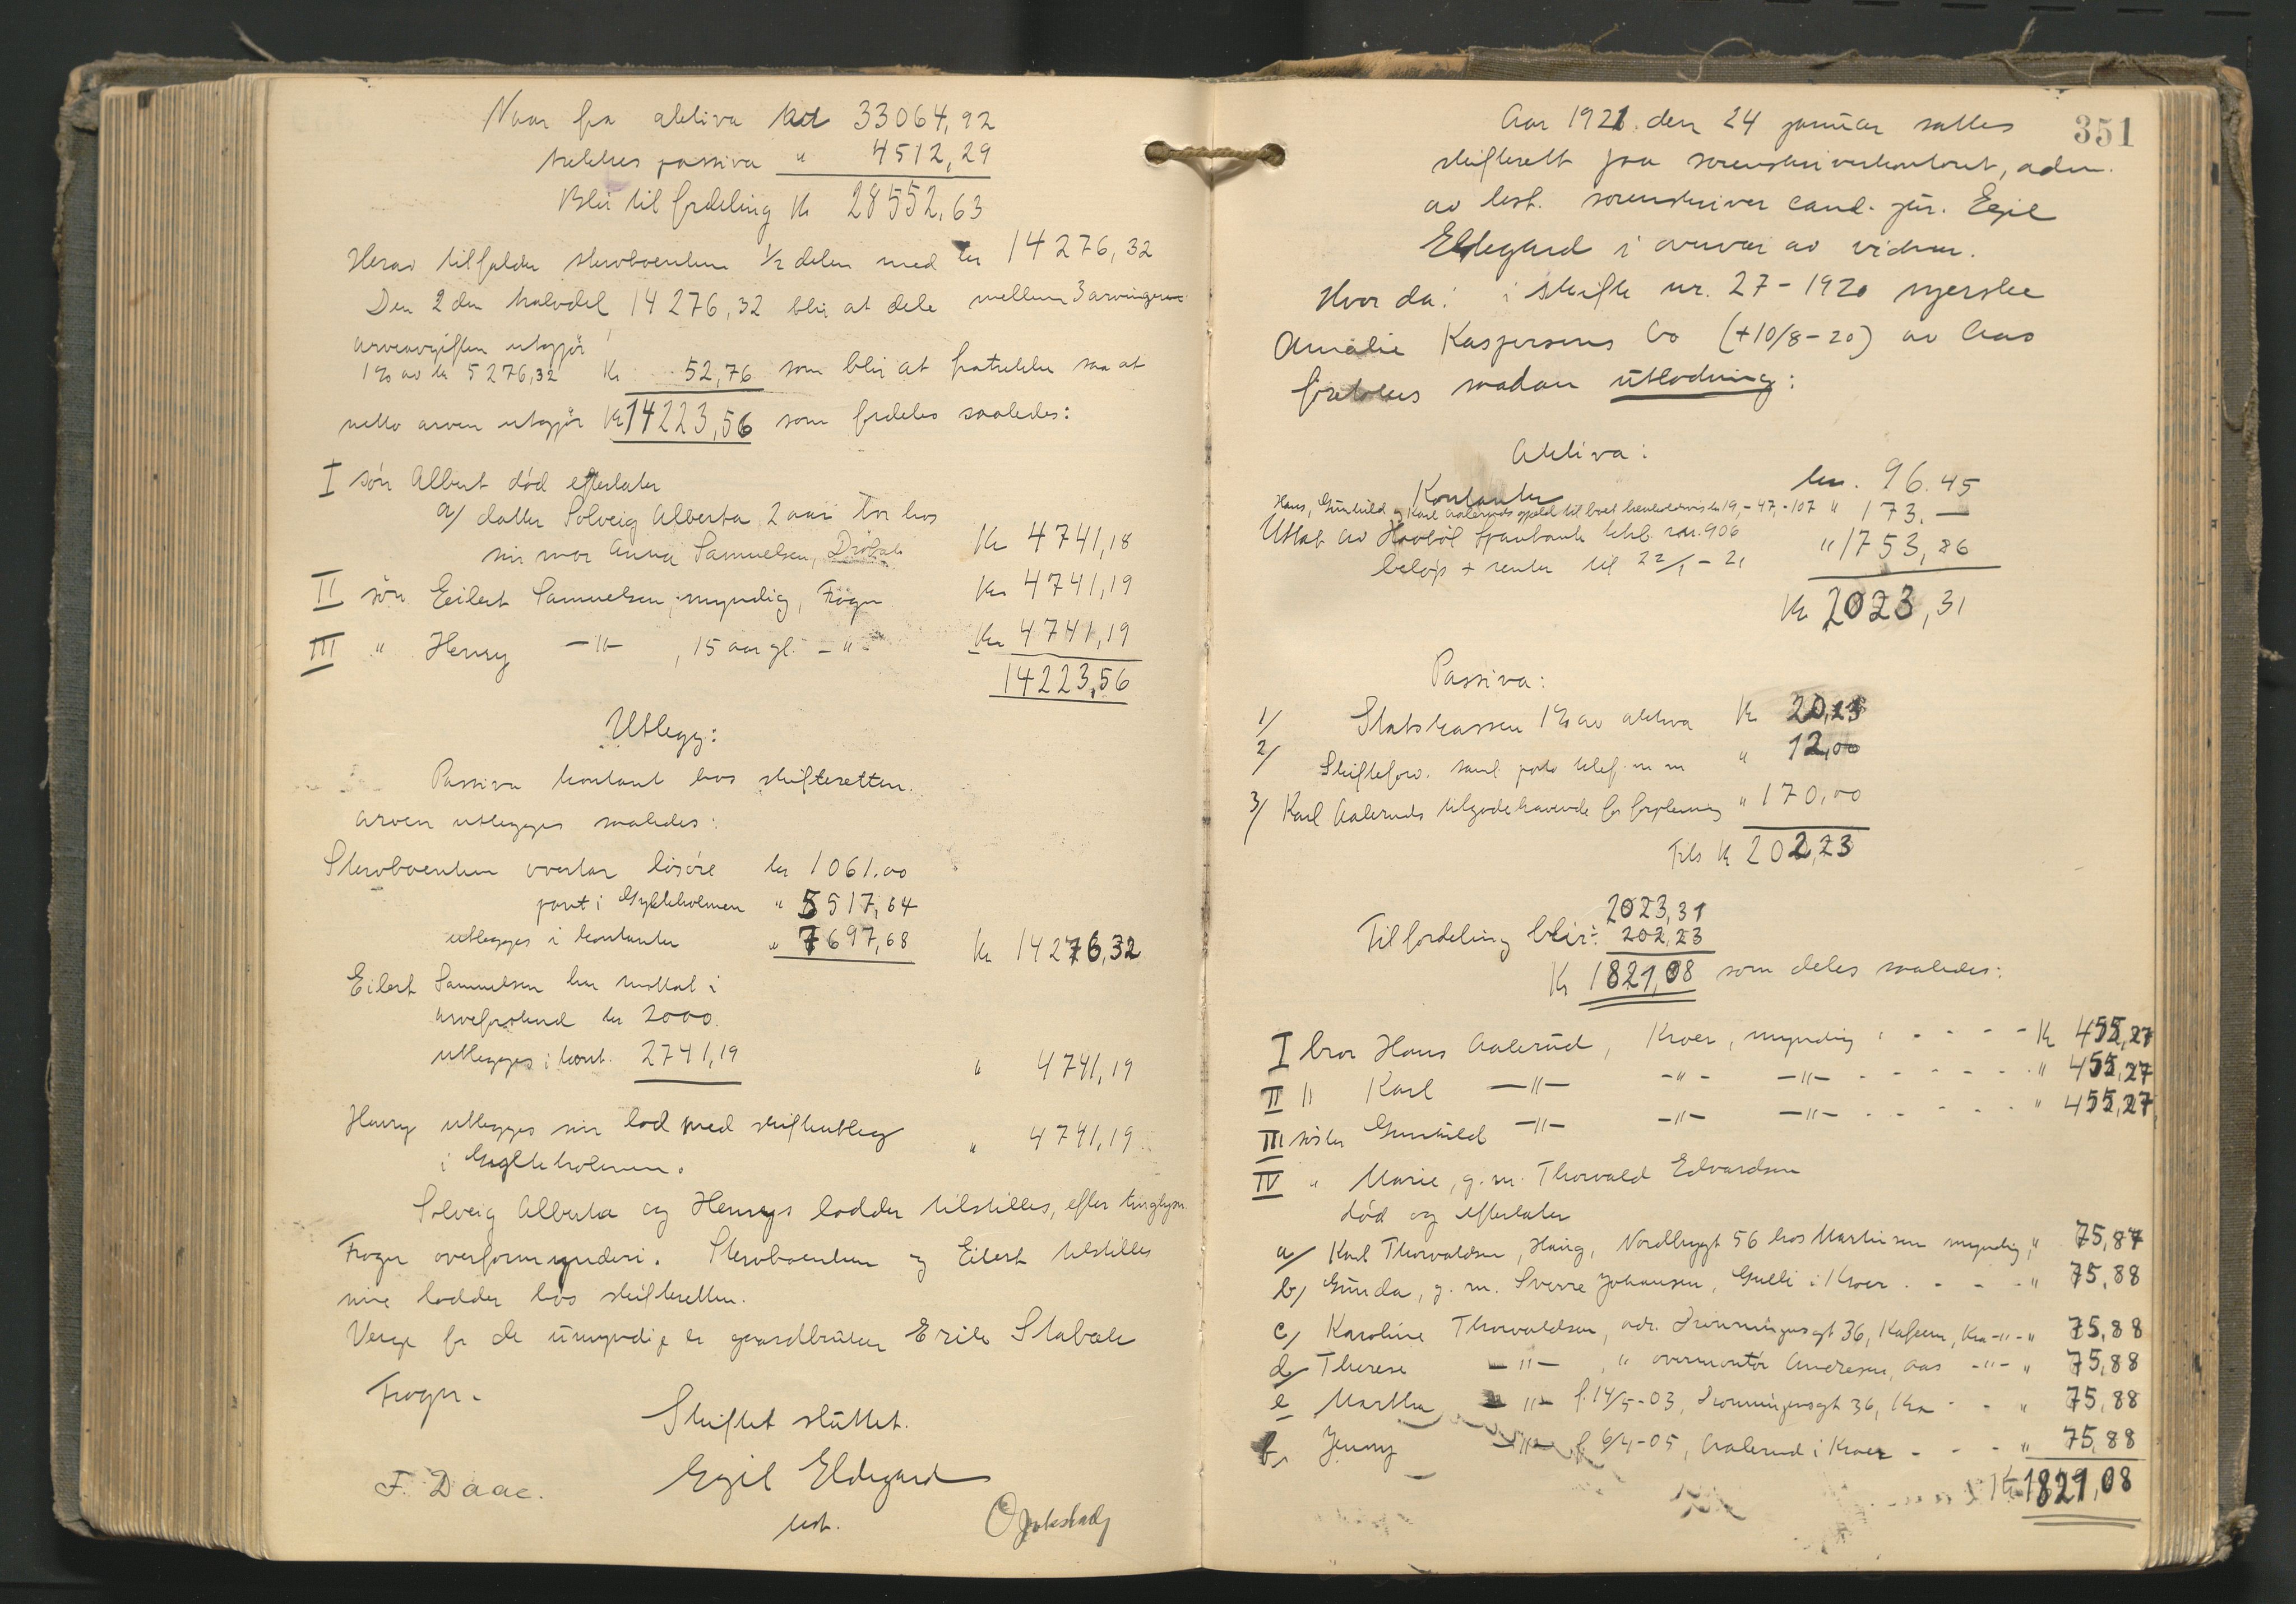 Naar fra aktiva kr 33064,92
trekkes passiva " 4512,29
Blir til fordeling Kr 28552,63
Herav tilfalder sterboenken 1/2 delen med kr 14276,32
Den 2den halvdel 14276,32 blir at dele mellem 3 arvinger
arveavgiften utgjør
1% av kr 5276,32 Kr 52,76 som blir at fratrekke saa at
netto arven utgjør Kr 14223,56 som fordeles saaledes:
I søn Albert død efterlater
a/ datter Solveig Alberta 2 aar bor hos
sin mor Anna Samuelsen, Drøbak Kr 4741,18
II søn Eilert Samuelsen, myndig, Frogn Kr 4741,19
III " Henry -"- , 15 aar gl. - " - Kr 4741,19
14223,56
Utlegg:
Passiva kontant hos skifteretten.
Arven utlegges saaledes:
Sterboenken overtar løsøre kr 1061.00
pant i Gylteholmen " 5517,64
utlegges i kontanter " 7697,68 Kr 14276,32
Eilert Samuelsen har mottat i
arveforskud kr 2000.
utlegges i kont. 2741,19 " 4741,19
Henry utlegges sin lod med skifteutlæg " 4741,19
i Gylteholmen.
Solveig Alberta og Henrys lodder tilstilles, efter tinglysn.
Frogn overformynderi. Sterboenken og Eilert tilstilles
sine lodder hos skifteretten.
Verge for de umyndige er gaardbruker Erik Stabæk
Frogn.
Skiftet sluttet.
Egil Eldegard
kst.
F. Daae.
351
Aar 1921 den 24 januar sattes
skifterett paa sorenskriverkontoret, adm.
av kst. sorenskriver cand. jur. Egil
Eldegard i overvær av vidner.
Hvor da: i skifte nr. 27 - 1920 syerske
Amalie Kaspersens bo (+10/8-20) av Aas
foretokes saadan utlodning:
Aktiva:
Kontanter kr. 96.45
Hans, Gunhild og Karl Aaleruds gjæld til boet henholdsvis kr 19,- 47,- 107 " 173.—
Uttat av Hovbøl Sparebank ktb. nr. 906
beløp + renter til 22/1 - 21 " 1753,86
Kr 2023,31
Passiva:
1/ Statskassen 1% av aktiva Kr 20,23
2/ Skifteforv. saml porto telef. m m " 12,00
3/ Karl Aaleruds tilgodehavende for forpleining " 170,00
Tils Kr 202,23
2023,31
Til fordeling blir: 202,23
Kr 1821,08 som deles saaledes:
I bror Hans Aalerud, Kroer, myndig - - - - Kr 455,27
II " Karl -"- -"- -"- - - - - - " 455,27
III søster Gunhild -"- -"- -"- - - - - " 455,27
IV " Marie, g. m. Thorvald Edvardsen
død og efterlater
a/ Karl Thorvaldsen, Haug, Nordbygt 56 hos Martinsen myndig, " 75,87
b/ Gunda, g. m. Sverre Johansen, Gulli i Kroer - - - " 75,88
c/ Karoline Thorvaldsen, adr. Dronningensgt 36, Kafeen, Kra -"- " 75,88
d/ Therese -"- , " overmontør Andresen, Aas -"- " 75,88
e Martha -"- f. 14/5-03, Dronningensgt 36, Kra - - " 75,88
f, Jenny -"- f 6/4-05, Aalerud i Kroer - - - " 75,88
Kr 1821,08